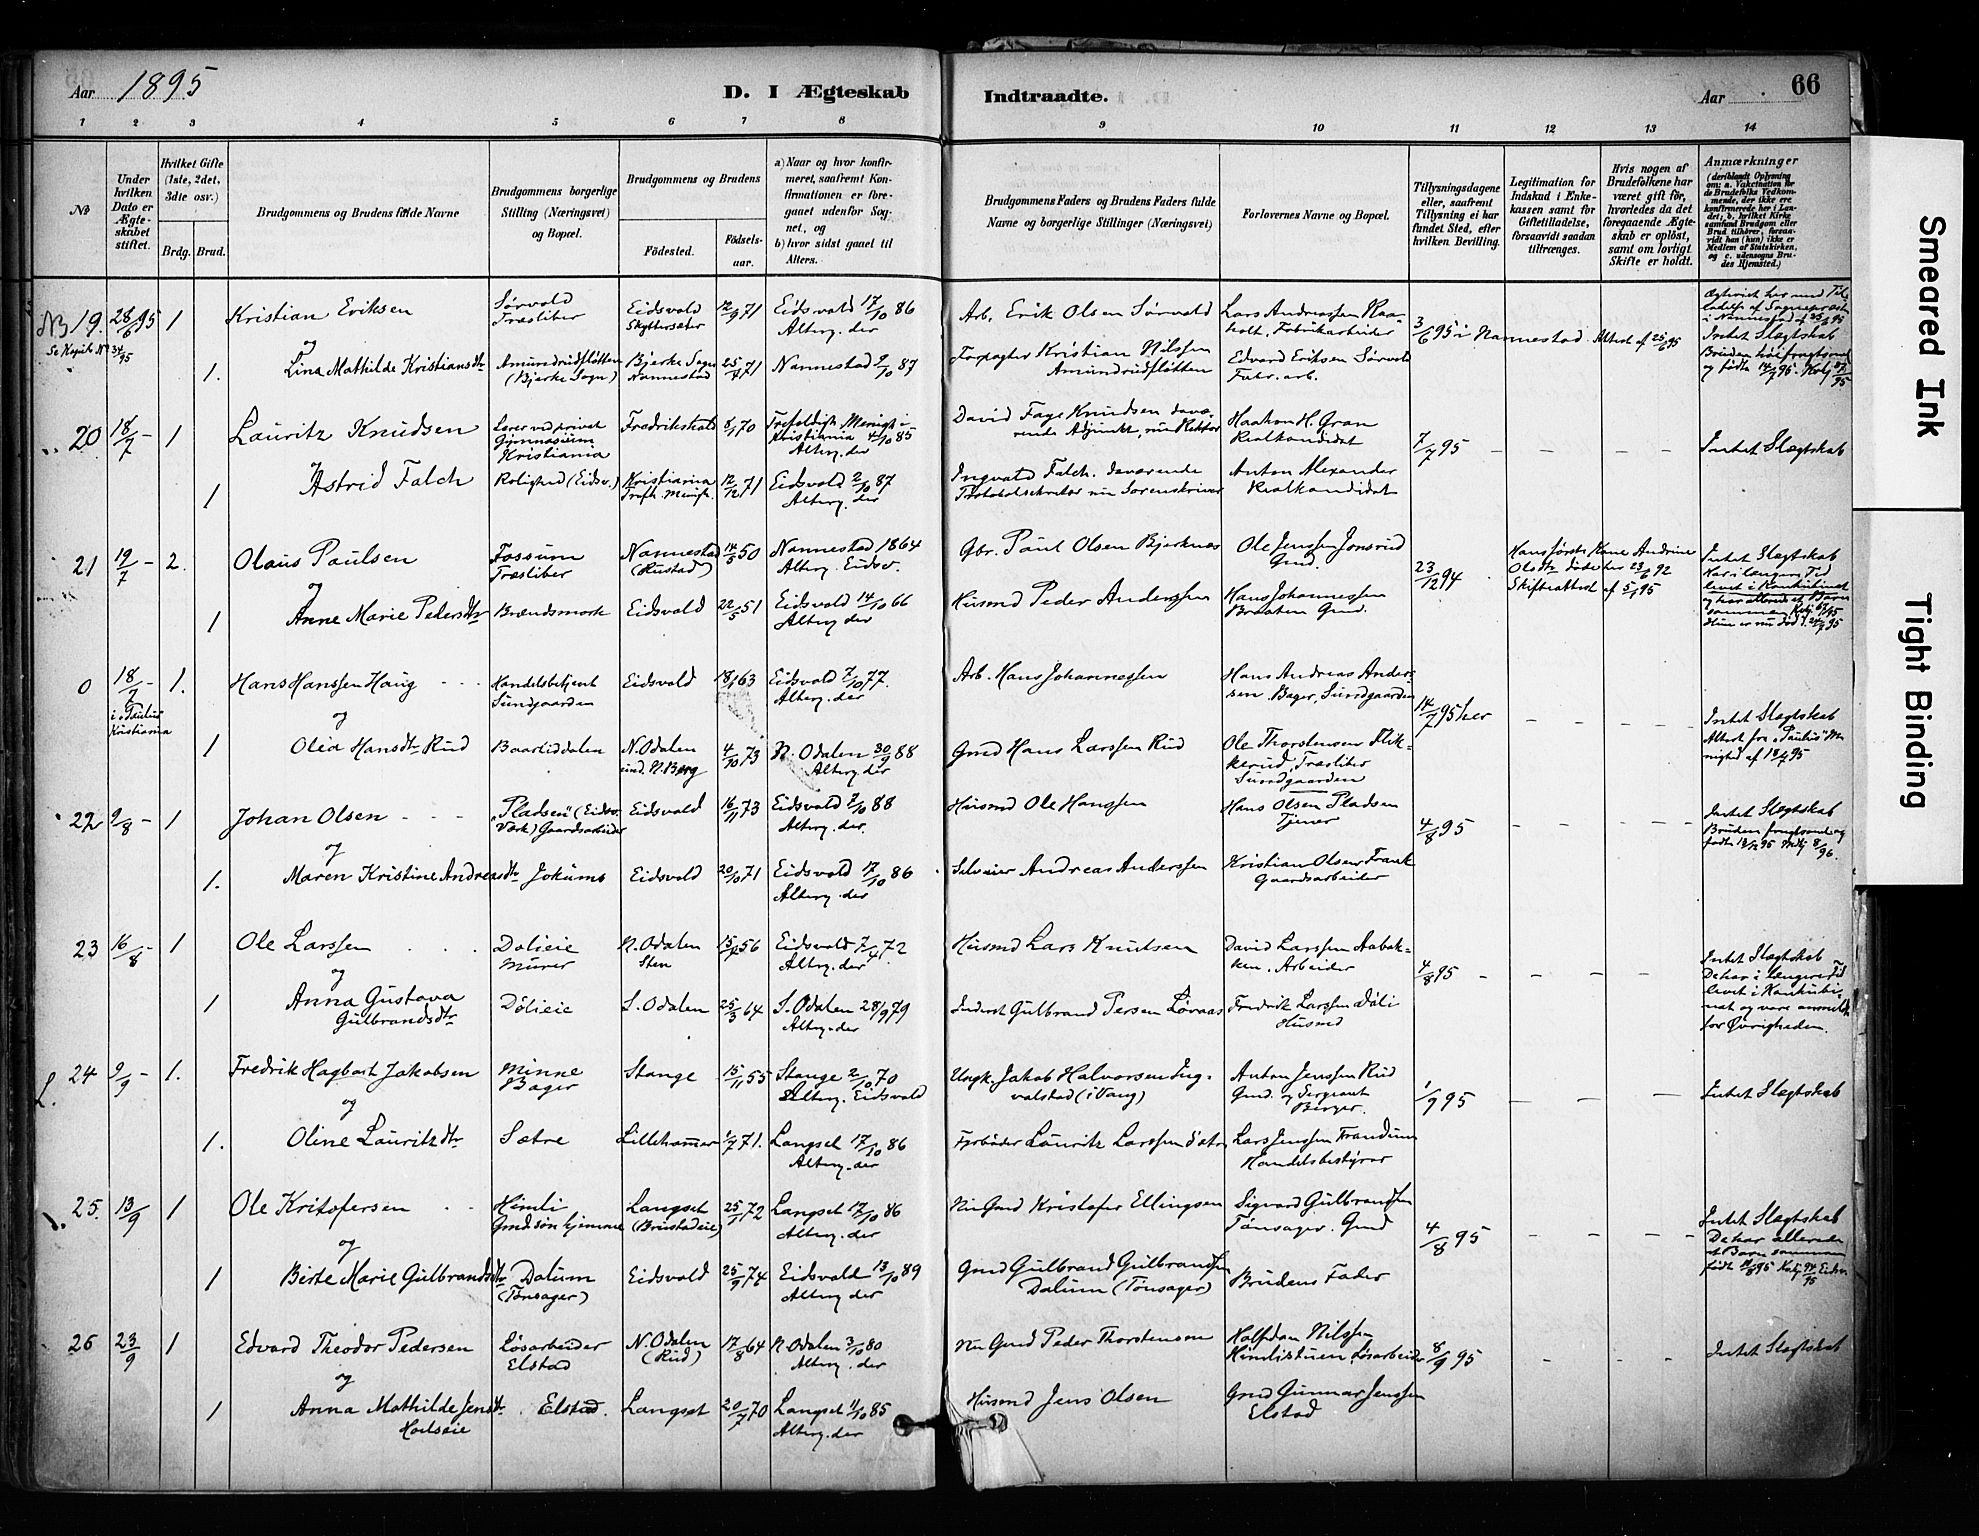 Aar 1895
D. I Ægteskab Indtraadte.
Aar
66
1 2 3 4 5 6 7 8 9 10 11 12 13 14
No
Under hvilken Dato er Ægteskabet stiftet.
Hvilket Gifte (1ste, 2det, 3die osv.)
Brdg. Brud.
Brudgommens og Brudens fulde Navne
Brudgommens borgerlige Stilling (Næringsvei) og Bopæl.
Brudgommens og Brudens
Fødested. Fødselsaar.
a) Naar og hvor konfirmeret, saafremt Konfirmationen er foregaaet udenfor Sognet, og
b) hvor sidst gaaet til Alters.
Brudgommens Faders og Brudens Faders fulde Navne og borgerlige Stillinger (Næringsvei)
Forlovernes Navne og Bopæl.
Tillysningsdagene eller, saafremt Tillysning ei har fundet Sted, efter hvilken Bevilling.
Legitimation for Indskud i Enkekassen samt for Giftetilladelse, forsaavidt saadan tiltrænges.
Hvis nogen af Brudefolkene har været gift før, hvorledes da det foregaaende Ægteskab er opløst, samt om lovligt Skifte er holdt.
Anmærkninger
(deriblandt Oplysning om: a. Vakcination for de Brudefolks Vedkommende, der ikke ere konfirmerede her i Landet; b. hvilket Kirkesamfund Brudgom eller Brud tilhører, forsaavidt han (hun) ikke er Medlem af Statskirken, og c. udensogns Brudes Hjemsted.)
NB 19. 28/6 95 1 Kristian Eriksen Sørvold Træsliber Eidsvold 12/9 71 Eidsvold 17/10 86 Alterg. der Arb. Erik Olsen Sørvold Lars Andreassen Fabrikarbeider 3/6 95 i Nannestad Attest af 25/6 95
og
1. Lina Mathilde Kristiansdtr Amundrudfløtten (Bjerke Sogn) Bjerke Sogn Nannestad 25/4 71 Nannestad 9/10 87 Forpagter Kristian Nilssen Amundrudfløtten Edvard Eriksen Sørvold Fabr. arb. Intet Slægtskab
20 18/7 - 1 Lauritz Knudsen Lærer ved privat Gymnasium Kristiania Fredrikstad 8/1 70 Trefoldigh. Menigh. i Kristiania 4/10 85 Alterg. der David Faye Knudsen daværende Adjunkt, nu Rektor Haakon H. Gran Realkandidat 7/7 95 Intet Slægtskab
og
1 Astrid Falch Rolighed (Eidsv.) Kristiania Trefh. Menigh. 12/12 71 Eidsvold 2/10 87 Alterg. der Ingvald Falch. daværende Protokolsekretær nu Sorenskriver Anton Alexander Realkandidat
21 19/7 - 2. Olaus Paulsen Fossum Træsliber Nannestad (Rustad) 14/3 50 Nannestad 1864 Alterg. Eidsv. Gbr. Paul Olsen Bjerknes Ole Jenssen Jonsrud Gmd. 23/12 94 Hans første Kone Andrine Olsdtr døde her 23/6 92 Skifteattest af 5/1 95 Intet Slægtskab
og
1 Anne Marie Pedersdtr Brændsmork Eidsvold 22/5 51 Eidsvold 14/10 66 Alterg. der Husmd Peder Anderssen Hans Johannessen Braaten Gmd.
0 18/7 - 1. Hans Hanssen Haug Handelsbetjent Sundgaarden Eidsvold 18/1 63 Eidsvold 7/10 77. Alterg. der Arb. Hans Johannessen Hans Andreas Anderssen. Bager, Sundgaarden 14/7 95 her Intet Slægtskab Attest fra „Paulus" Menighed af 18/7 95
i „Paulus" Kristiania
og
1 Olea Hansdtr Rud Baarliddalen N. Odalen 4/10 73 N. Odalen 30/9 88 Alterg. der Gmd Hans Larssen Rud Ole Thorstensen Flikkerud, Træsliber Sundgaarden
22 9/8 - 1 Johan Olsen „Pladsen" (Eidsv. Værk) Gaardsarbeider Eidsvold 16/11 73 Eidsvold 7/10 88 Alterg. der. Husmd Ole Hanssen Hans Olsen Pladsen Tjener 4/8 95 Intet Slægtskab
og
1. Maren Kristine Andreasdtr Jokums Eidsvold 20/10 71 Eidsvold 17/10 86 Alterg. der Selveier Andreas Anderssen Kristian Olsen Gaardsarbeider
23 16/8 - 1 Ole Larssen Dølieie Murer N. Odalen Sten 15/4 56 Eidsvold 7/4 72 Alterg. der Husmd Lars Knutsen David Larssen Aabakken. Arbeider 4/8 95 Intet Slægtskab De har i længere Tid levet i Konkubinat og vare anmeldte for Øvrigheden.
og
1 Anna Gustava Gulbrandsdtr Dølieie S. Odalen 25/3 64 S. Odalen 28/9 79 Alterg. der Inderst Gulbrand Persen Løvaas Fredrik Larssen Døli Husmd
24 9/9 - 1. Fredrik Hagbart Jakobsen Minne Bager Stange 15/11 55 Stange 2/10 70 Alterg. Eidsvold Ungk. Jakob Halvorsen Ingvalstad (i Vang) Anton Jenssen Rud Gmd. og Sergeant 1/9 95 Intet Slægtskab
og
1. Oline Lauritzdtr Sætre Lillehammer 1/7 71. Langset 17/10 86 Alterg. der Fyrbøder Lauritz Larssen Sætre Lars Jenssen Frandum Handelsbestyrer
25. 13/9 1 Ole Kristofersen Himli Gmdsøn hjemme Langset (Brustadeie) 25/11 72 Langset 17/10 86 Alterg. der Nu Gmd Kristofer Ellingsen Sigvard Gulbrandssen Tønsager. Gmd 4/8 95 Intet Slægtskab De har allerede et Barn sammen
og
1 Birte Marie Gulbrandsdtr Dalum (Tønsager) Eidsvold 25/9 74 Eidsvold 13/10 89 Alterg. der Gmd Gulbrand Gulbrandssen Dalum (Tønsager) Brudens Fader
26 23/9 1 Edvard Theodor Pedersen Løsarbeider Elstad N. Odalen (Rud) 17/8 64 N. Odalen 3/10 80 Alterg. der Nu Gmd Peder Thorstensen Halfdan Nilssen Himlistuen, Løsarbeider 8/9 95 Intet Slægtskab
og
1 Anna Mathilde Jensdtr Elstad. Langset 20/7 70 Langset 11/10 85 Alterg. der Husmd Jens Olsen Gmd Gunnar Jenssen Elstad
Smeared Ink
Tight Binding